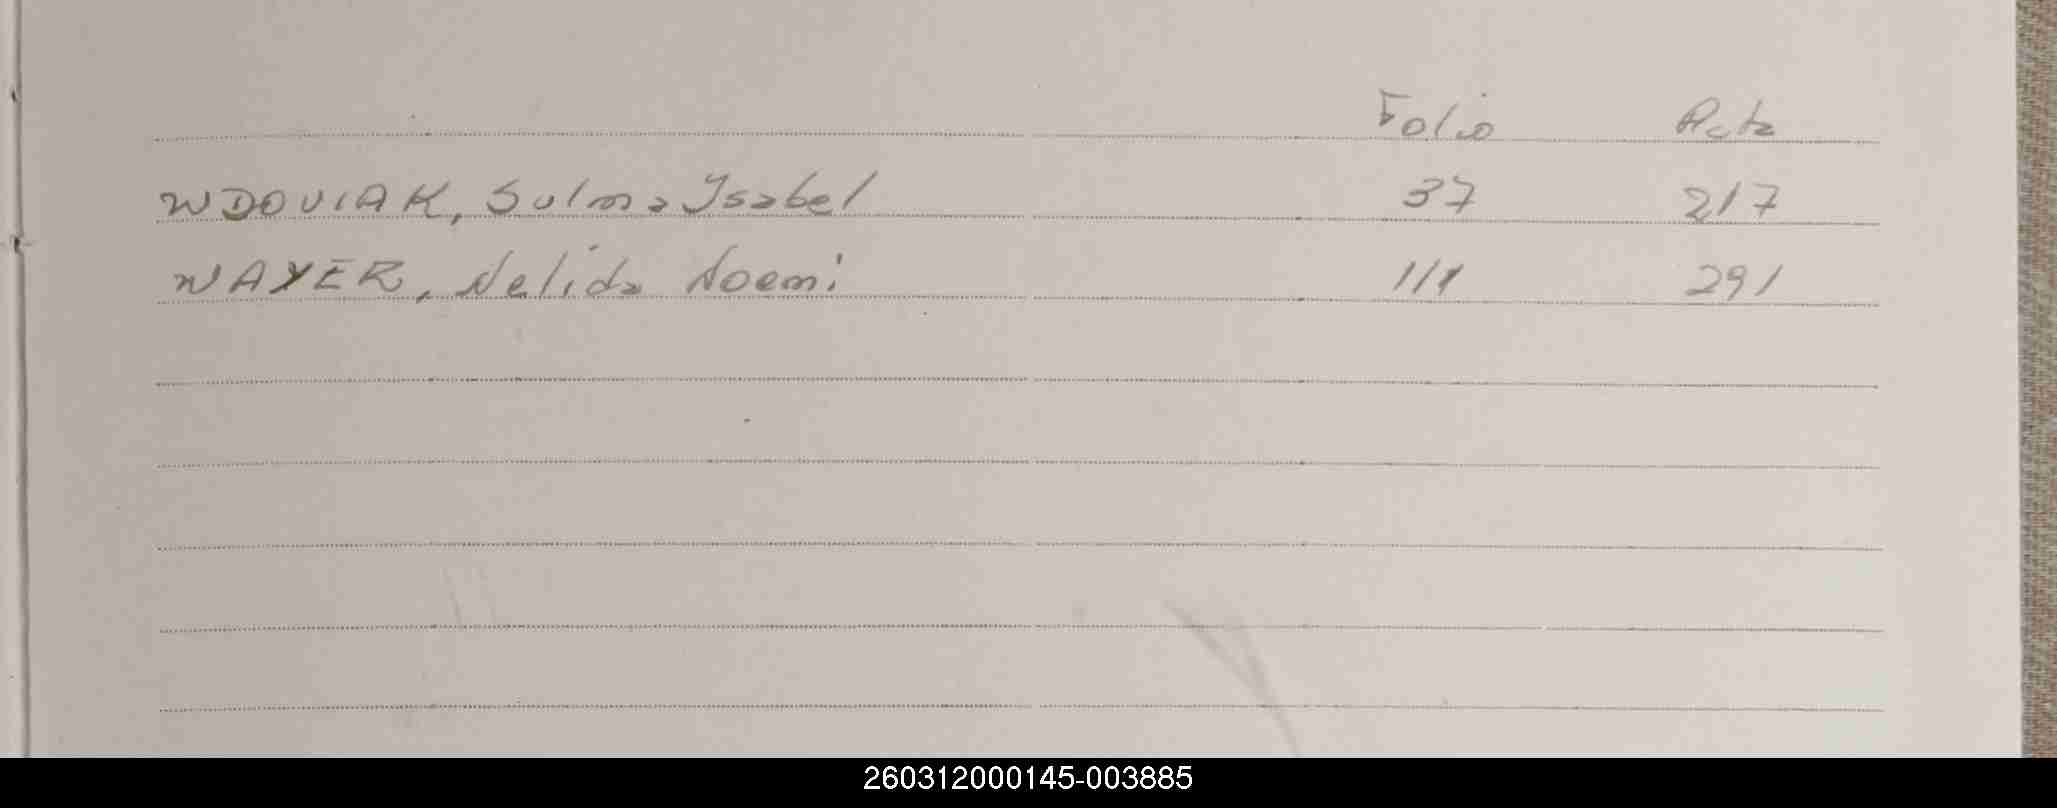 Folio Acta
WDOVIAK, Sulma Ysabel 37 217
WAYER, Nelida Noemi 111 291
260312000145-003885